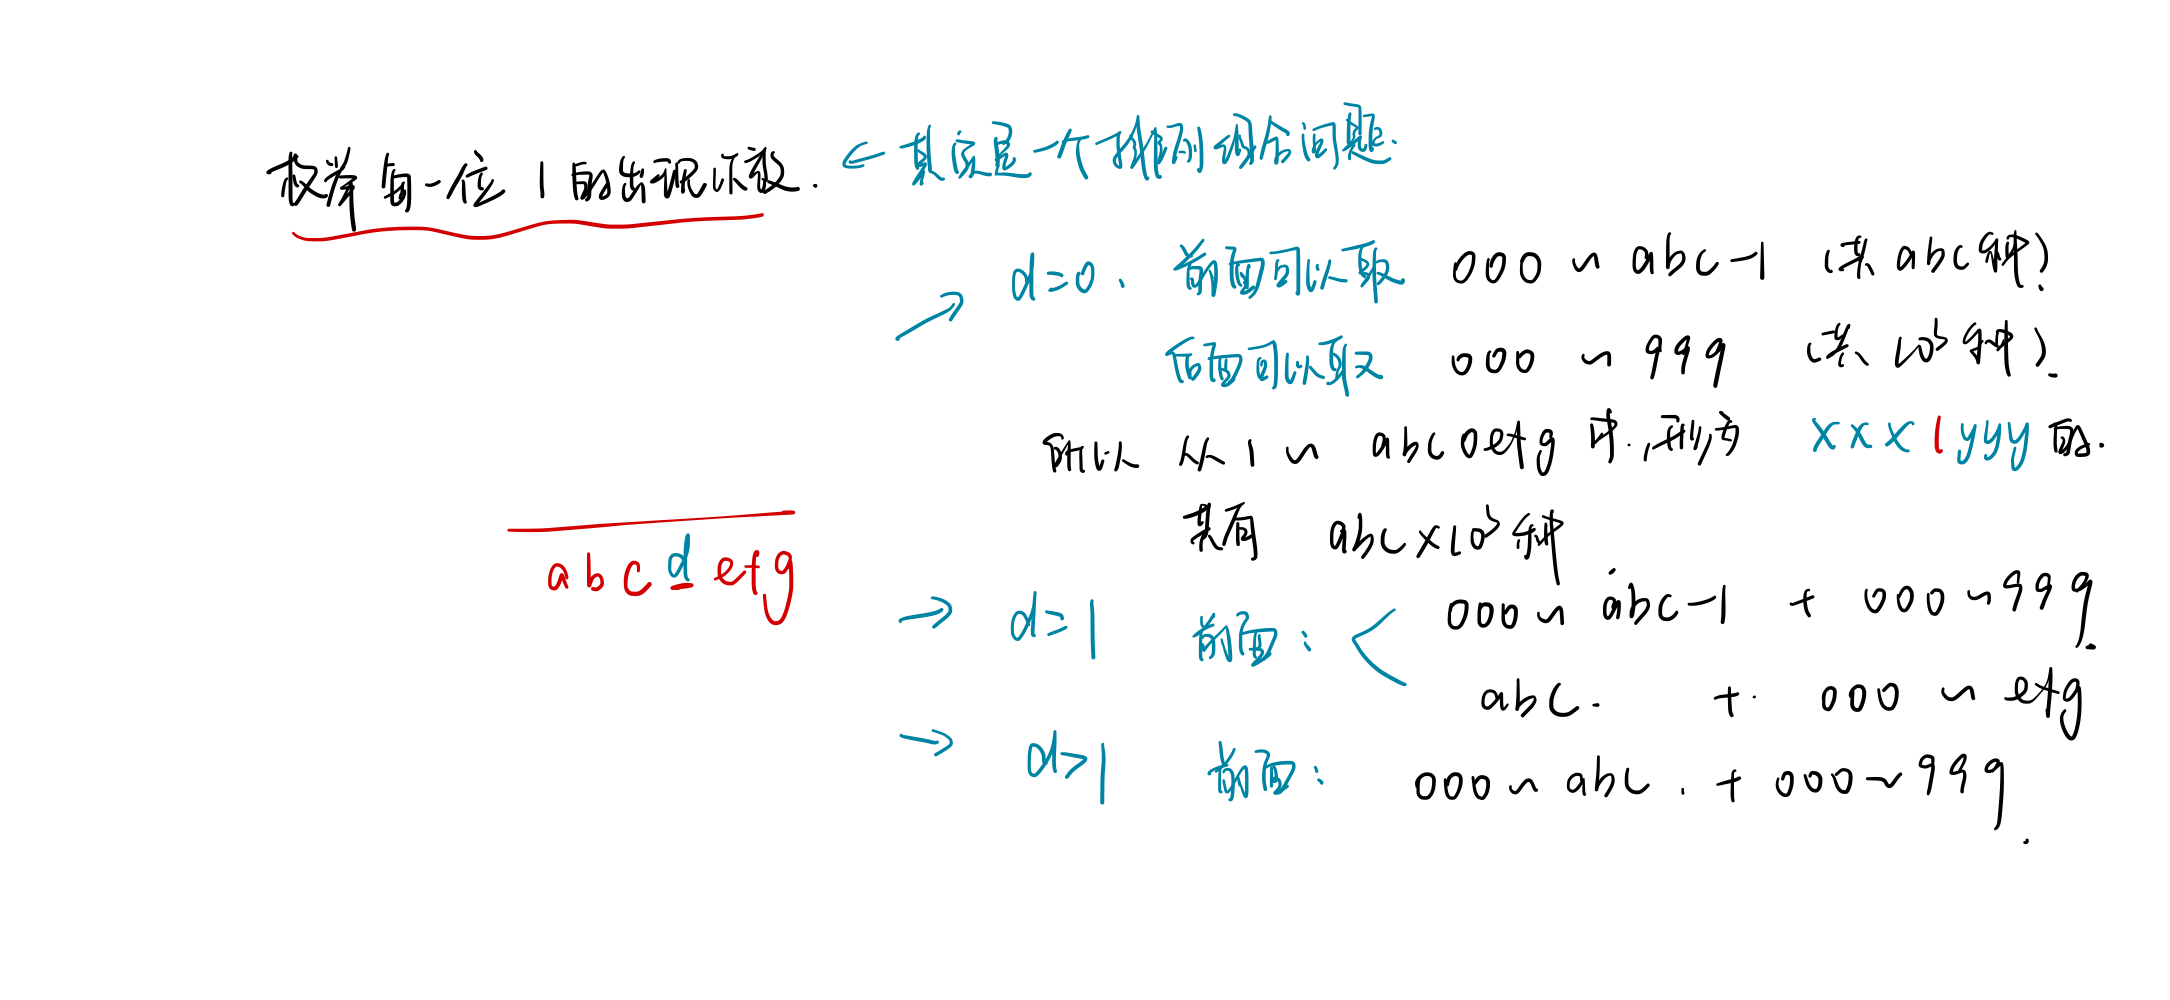 枚举每一位 1 的出现次数.
← 其实是一个排列组合问题.
d=0. 前面可以取 000 ~ abc-1 (共 abc种).
后面可以取 000 ~ 999 (共 10³ 种).
所以 从 1 ~ abc0efg 中,形为 xxx1yyy 的.
共有 abc×10³ 种
abcdefg
→ d=1 前面: 000 ~ abc-1 + 000 ~ 999.
abc. + 000 ~ efg
→ d>1 前面: 000 ~ abc. + 000 ~ 999.